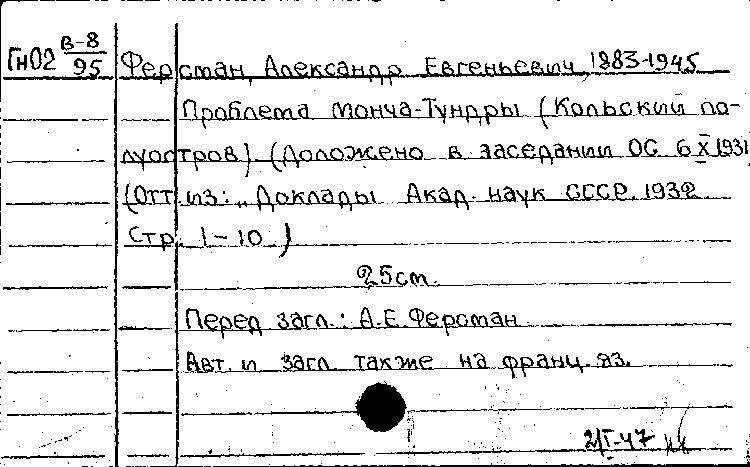 Гн02 В-8/95 Ферсман, Александр Евгеньевич, 1883-1945
Проблема Монча-Тундры (Кольский по-
луостров). (Доложено в заседании ОС 6 X 1931)
(Отт. из: „Доклады Акад. наук СССР. 1932
Стр. 1-10.)
25 cm.
Перед загл.: А.Е. Ферсман.
Авт. и загл. также на франц. яз.
2/I-47